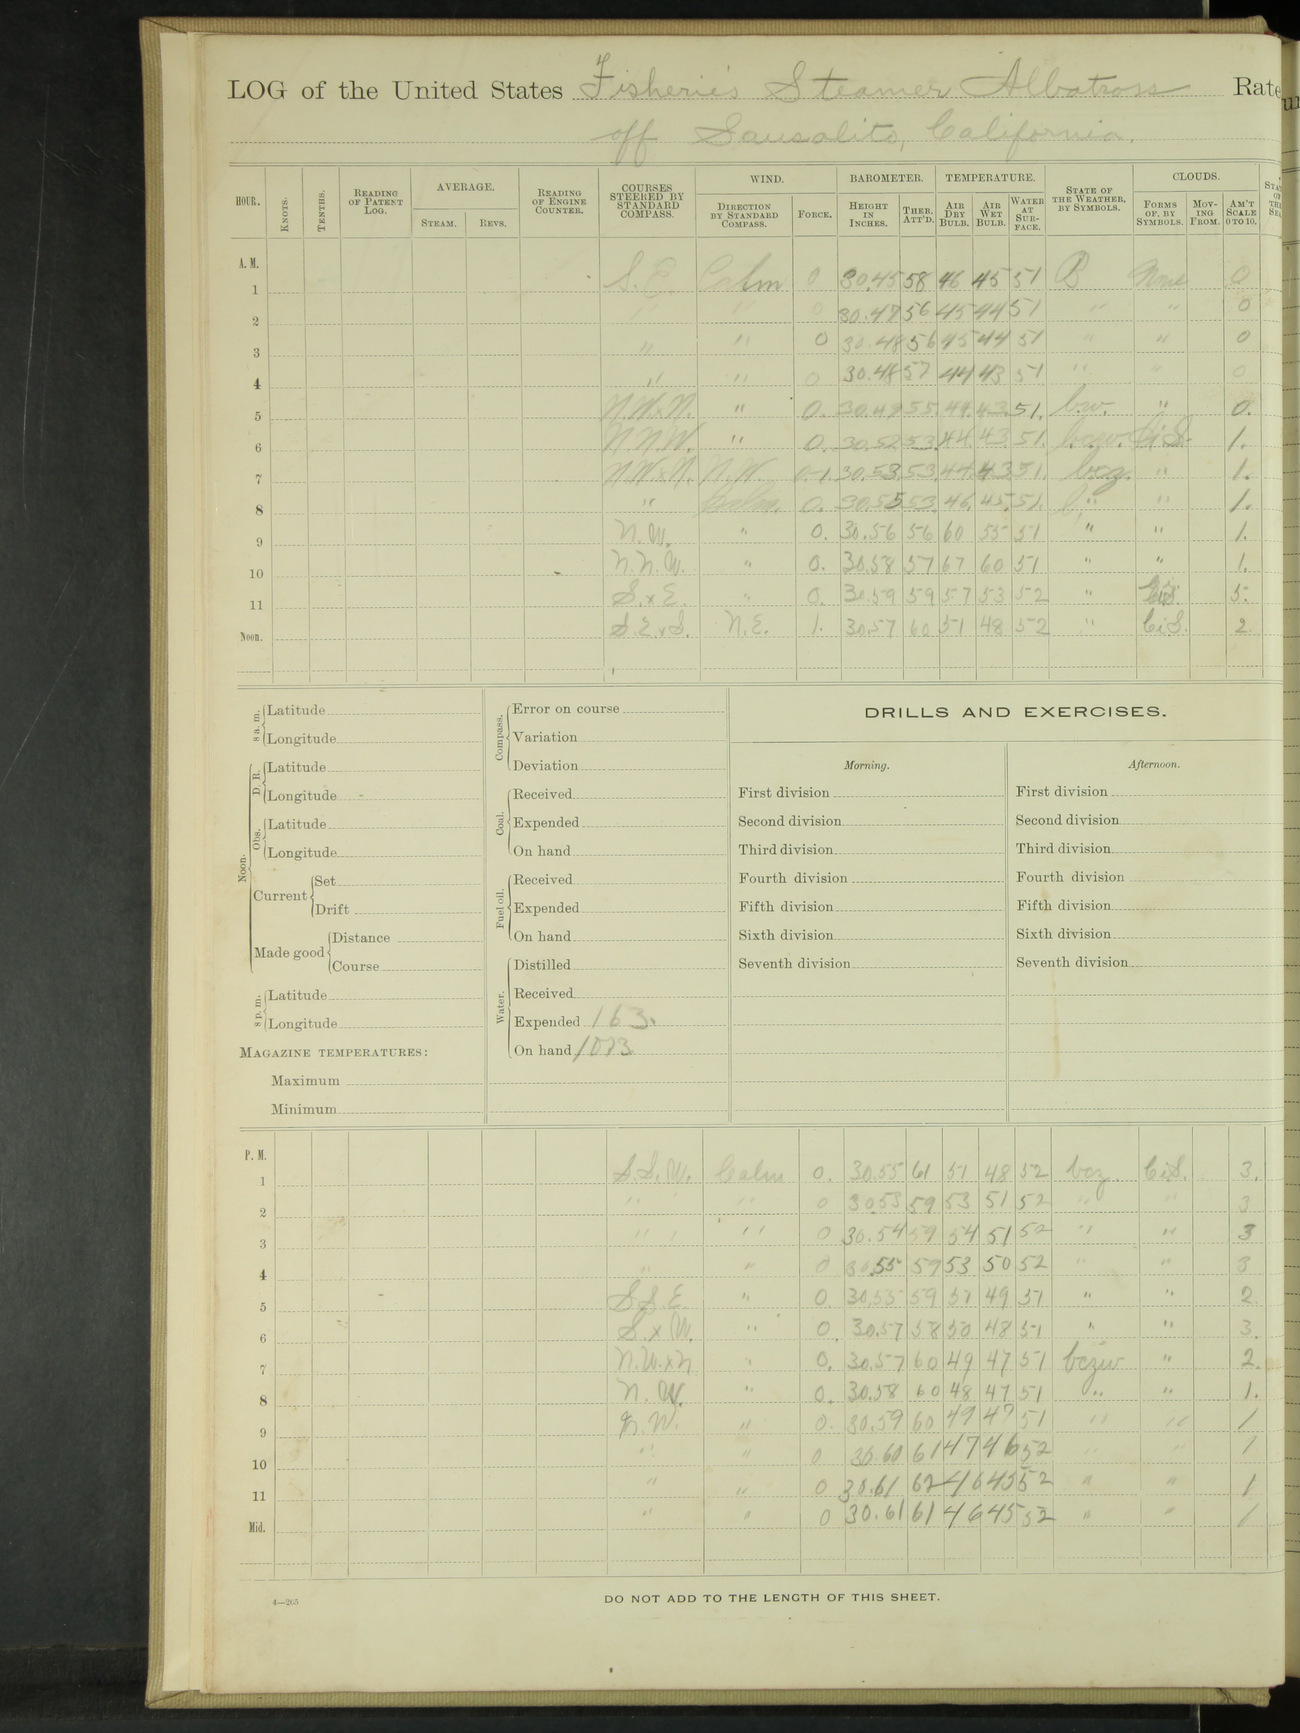 LOG of the United States Fisheries Steamer Albatross Rate
off Sausalito, California.
HOUR. KNOTS. TENTHS. READING OF PATENT LOG. AVERAGE. STEAM. REVS. READING OF ENGINE COUNTER. COURSES STEERED BY STANDARD COMPASS. WIND. DIRECTION BY STANDARD COMPASS. FORCE. BAROMETER. HEIGHT IN INCHES. THER. ATT'D. TEMPERATURE. AIR DRY BULB. AIR WET BULB. WATER AT SURFACE. STATE OF THE WEATHER, BY SYMBOLS. CLOUDS. FORMS OF, BY SYMBOLS. MOVING FROM. AM'T SCALE 0 TO 10.
A. M.
1 S.E. Calm 0 30.45 58 46 45 51 B None 0
2 " " 0 30.47 56 45 44 51 " " 0
3 " " 0 30.48 56 45 44 51 " " 0
4 " " 0 30.48 57 44 43 51 " " 0
5 N.W.xN. " 0. 30.49 55. 44. 43. 51. bw. " 0.
6 N.N.W. " 0. 30.52 53. 44. 43. 51. bczw. Ci.S. 1.
7 N.W.xN. N.W. 0-1. 30.53. 53. 44. 43. 51. bcz. " 1.
8 " Calm. 0. 30.55 53. 46. 45. 51. " " 1.
9 N.W. " 0. 30.56 56 60 55 51 " " 1.
10 N.N.W. " 0. 30.58 57 67 60 51 " " 1.
11 S.xE. " 0. 30.59 59 57 53 52 " Ci.S. 5.
Noon. S.E.xS. N.E. 1. 30.57 60 51 48 52 " Ci.S. 2
8 a. m. Latitude
Longitude
Noon. D. R. Latitude
Longitude
Obs. Latitude
Longitude
Current Set
Drift
Made good Distance
Course
8 p. m. Latitude
Longitude
MAGAZINE TEMPERATURES:
Maximum
Minimum
Compass. Error on course
Variation
Deviation
Coal. Received
Expended
On hand
Fuel oil. Received
Expended
On hand
Water. Distilled
Received
Expended 163.
On hand 1073
DRILLS AND EXERCISES.
Morning.
First division
Second division
Third division
Fourth division
Fifth division
Sixth division
Seventh division
Afternoon.
First division
Second division
Third division
Fourth division
Fifth division
Sixth division
Seventh division
P. M.
1 S.S.W. Calm 0. 30.55 61 51 48 52 bcz. Ci.S. 3.
2 " " 0 30.53 59 53 51 52 " " 3
3 " " 0 30.54 59 54 51 52 " " 3
4 " " 0 30.55 59 53 50 52 " " 3
5 S.S.E. " 0. 30.55 59 51 49 51 " " 2.
6 S.xW. " 0. 30.57 58 50 48 51 " " 3.
7 N.W.xN " 0. 30.57 60 49 47 51 bczw " 2.
8 N.W. " 0. 30.58 60 48 47 51 " " 1.
9 N.W. " 0. 30.59 60 49 47 51 " " 1
10 " " 0 30.60 61 47 46 52 " " 1
11 " " 0 30.61 62 46 45 52 " " 1
Mid. " " 0 30.61 61 46 45 52 " " 1
4—265
DO NOT ADD TO THE LENGTH OF THIS SHEET.